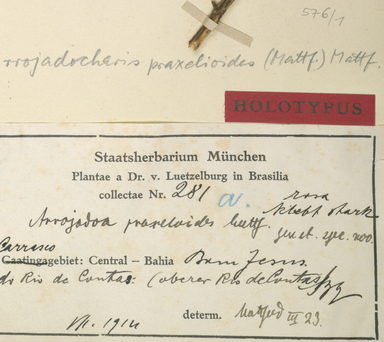 576/1
rrojadocharis praxelioides (Mattf.) Mattf.
HOLOTYPUS
Staatsherbarium München
Plantae a Dr. v. Luetzelburg in Brasilia
collectae Nr. 281 a.
rosa
klebt stark
Arrojadoa praxeloides Mattf. gen. et. spec. nov.
Carrasco
Caatingagebiet: Central – Bahia Bom Jesus
do Rio de Contas: (oberer Rio de Contas
VII. 1914 determ. Mattfeld III 23.